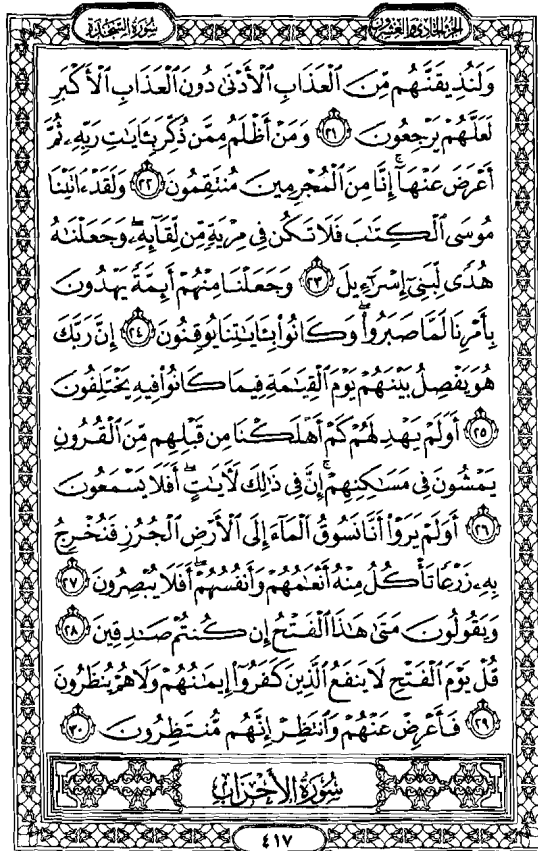 الجزء الحادي والعشرون
سورة السجدة
وَلَنُذِيقَنَّهُم مِّنَ ٱلْعَذَابِ ٱلْأَدْنَىٰ دُونَ ٱلْعَذَابِ ٱلْأَكْبَرِ
لَعَلَّهُمْ يَرْجِعُونَ ٢١ وَمَنْ أَظْلَمُ مِمَّن ذُكِّرَ بِـَٔايَٰتِ رَبِّهِۦ ثُمَّ
أَعْرَضَ عَنْهَآ ۚ إِنَّا مِنَ ٱلْمُجْرِمِينَ مُنتَقِمُونَ ٢٢ وَلَقَدْ ءَاتَيْنَا
مُوسَى ٱلْكِتَٰبَ فَلَا تَكُن فِى مِرْيَةٍ مِّن لِّقَآئِهِۦ ۖ وَجَعَلْنَٰهُ
هُدًى لِّبَنِىٓ إِسْرَٰٓءِيلَ ٢٣ وَجَعَلْنَا مِنْهُمْ أَئِمَّةً يَهْدُونَ
بِأَمْرِنَا لَمَّا صَبَرُوا۟ ۖ وَكَانُوا۟ بِـَٔايَٰتِنَا يُوقِنُونَ ٢٤ إِنَّ رَبَّكَ
هُوَ يَفْصِلُ بَيْنَهُمْ يَوْمَ ٱلْقِيَٰمَةِ فِيمَا كَانُوا۟ فِيهِ يَخْتَلِفُونَ
٢٥ أَوَلَمْ يَهْدِ لَهُمْ كَمْ أَهْلَكْنَا مِن قَبْلِهِم مِّنَ ٱلْقُرُونِ
يَمْشُونَ فِى مَسَٰكِنِهِمْ ۚ إِنَّ فِى ذَٰلِكَ لَءَايَٰتٍ ۖ أَفَلَا يَسْمَعُونَ
٢٦ أَوَلَمْ يَرَوْا۟ أَنَّا نَسُوقُ ٱلْمَآءَ إِلَى ٱلْأَرْضِ ٱلْجُرُزِ فَنُخْرِجُ
بِهِۦ زَرْعًا تَأْكُلُ مِنْهُ أَنْعَٰمُهُمْ وَأَنفُسُهُمْ ۖ أَفَلَا يُبْصِرُونَ ٢٧
وَيَقُولُونَ مَتَىٰ هَٰذَا ٱلْفَتْحُ إِن كُنتُمْ صَٰدِقِينَ ٢٨
قُلْ يَوْمَ ٱلْفَتْحِ لَا يَنفَعُ ٱلَّذِينَ كَفَرُوٓا۟ إِيمَٰنُهُمْ وَلَا هُمْ يُنظَرُونَ
٢٩ فَأَعْرِضْ عَنْهُمْ وَٱنتَظِرْ إِنَّهُم مُّنتَظِرُونَ ٣٠
سورة الأحزاب
٤١٧